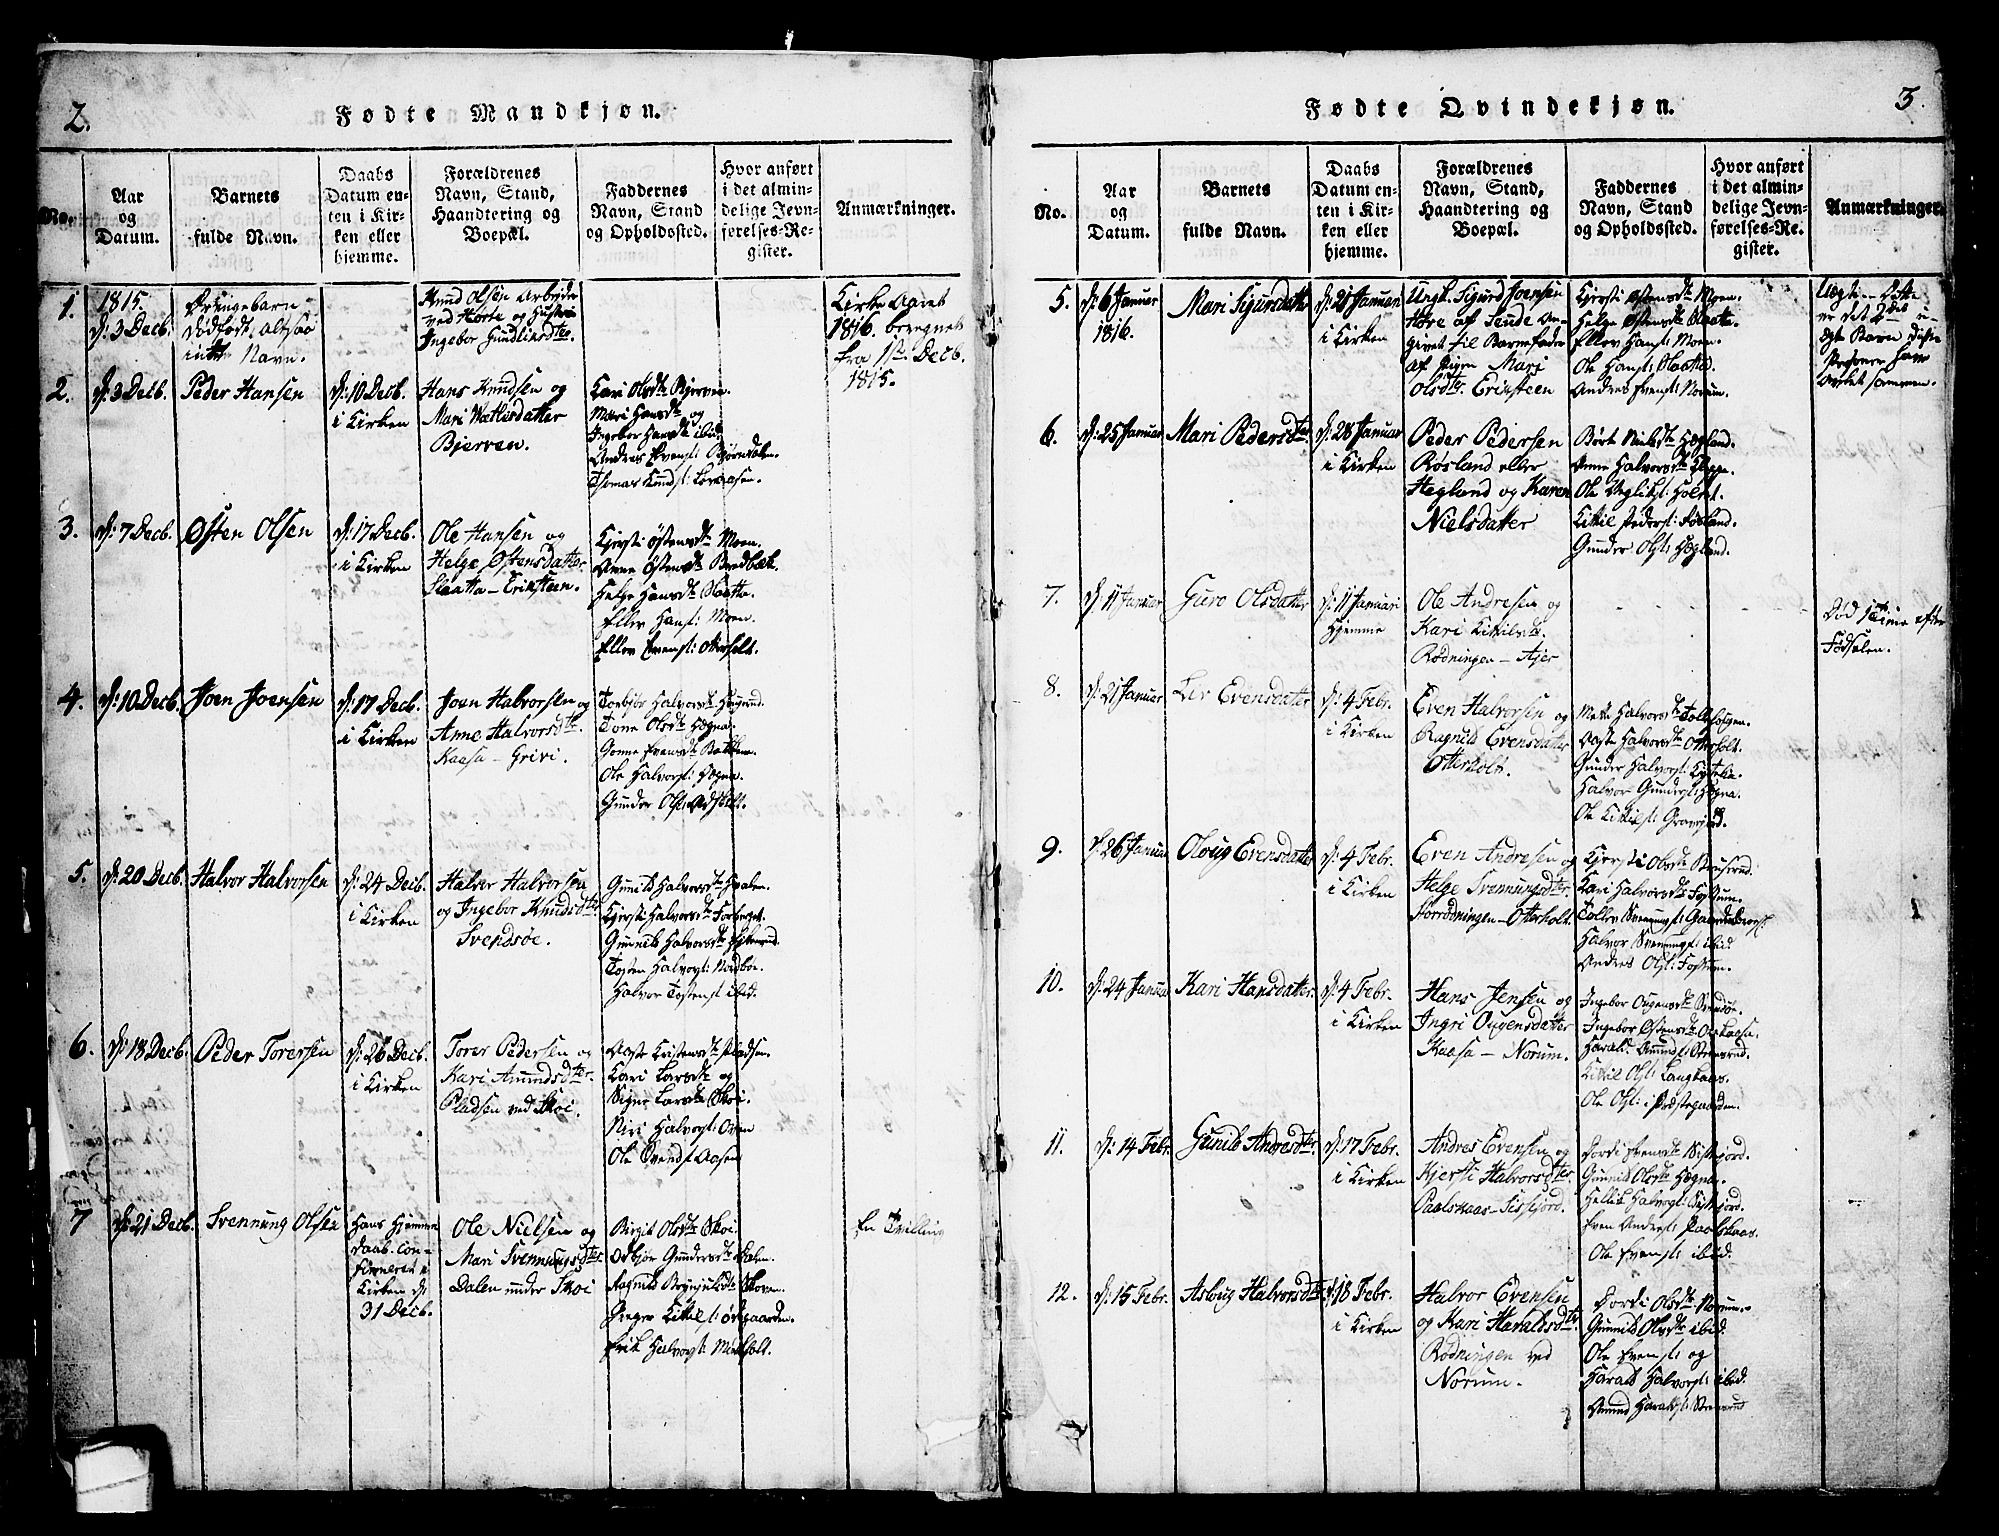 2.
Fødte Mandkjøn.
No.
Aar
og
Datum.
Barnets
fulde Navn.
Daabs
Datum en-
ten i Kir-
ken eller
hjemme.
Forældrenes
Navn, Stand,
Haandtering og
Boepæl.
Faddernes
Navn, Stand
og Opholdssted.
Hvor anført
i det almin-
delige Jevn-
førelses-Re-
gister.
Anmærkninger.
1.
1815.
d: 3 Decb.
Drengebarn
dødfødt, altsaa
intet Navn.
Knud Olsen Arbeider
ved Hørte og Hustru
Ingebor Gundliksdtr.
Kirke Aaret
1816. beregnet
fra 1ste Decb.
1815.
2.
d: 3 Decb.
Peder Hansen
d: 10 Decb.
i Kirken
Hans Knudsen og
Mari Wetlisdatter
Bjerven.
Kari Olsdtr Bjerven.
Mari Hansdtr og
Ingebor Hansdtr ibid.
Andres Evens: Bjørndalen.
Thomas Knuds:
3.
d: 7 Decb.
Østen Olsen
d: 17 Decb.
i Kirken
Ole Hansen og
Helge Østensdatter
Slaatta - Eriksteen.
Kjersti Østensdtr Moen.
Anne Østensdtr Bredbæk.
Helge Hansdtr Slaatta.
Ellev Hans: Moen.
Ellev Evens: Otterholt.
4.
d: 10 Decb.
Joen Joensen
d: 17 Decb.
i Kirken
Joen Halvorsen og
Anne Halvorsdtr.
Kaasa - Grivi.
Torbjør Halvorsdtr
Tone Olsdtr Hægna.
Gonne Evensdtr
Ole Halvors: Hægna.
Gunder Ols:
5.
d: 20 Decb.
Halvor Halvorsen
d: 24 Decb.
i Kirken
Halvor Halvorsen
og Ingebor Knudsdtr.
Svendsøe.
Gunild Halvorsdtr Hvalen.
Kjersti Halvorsdtr
Gunnild Halvorsdtr
Tosten Halvors: Nordbøe.
Halvor Tostens: ibid.
6.
d: 18 Decb.
Peder Torersen
d: 26 Decb.
i Kirken
Torer Pedersen og
Kari Amundsdtr.
Pladsen ved Skoi.
Aaste Cristensdtr Pladsen.
Kari Larsdtr og
Signe Larsdtr Skoi.
Niri Halvors: Oven
Ole Svends: Aasen
7
d: 21 Decb.
Svennung Olsen
Hans Hjemme
daab con-
firmeret i
Kirken d:
31 Decb.
Ole Nielsen og
Mari Svennungsdtr.
Dalen under Skoi
Birgit Olsdtr Skoi.
Odbjør Gundersdtr Dalen.
Aagnild Brynjulsdtr Skoven.
Greger Kittils: Øvregaarden.
Erik Halvors:
En Tvilling
3.
Fødte Qvindekjøn.
No.
Aar
og
Datum.
Barnets
fulde Navn.
Daabs
Datum en-
ten i Kir-
ken eller
hjemme.
Forældrenes
Navn, Stand,
Haandtering og
Boepæl.
Faddernes
Navn, Stand
og Opholdssted.
Hvor anført
i det almin-
delige Jevn-
førelses-Re-
gister.
Anmærkninger.
5.
d: 6 Januar
1816.
Mari Sigursdatter
d: 21 Januari
i Kirken
Ungk. Sigurd Joensen
Høre af Sende an-
givet til Barnefader
af Pigen Mari
Olsdtr. Eriksteen
Kjersti Østensdtr Moen.
Helge Østensdtr Slaatta.
Ellev Hans: Moen.
Ole Hans: Slaatta.
Andres Evens: Norum.
Uægte - Dette
er det 2det u-
ægte Barn disse
Personer have
avlet sammen.
6.
d: 25 Januar
Mari Pedersdtr.
d: 28 Januar
i Kirken
Peder Pedersen
Røsland eller
Hegland og Karen
Nielsdatter
Børte Nielsdtr Hægland.
Anne Halvorsdtr
Ole
Kittil Peders:
Gunder Ols: Hægland.
7.
d: 11 Januar
Guro Olsdatter
d: 11 Januari
Hjemme
Ole Andresen og
Kari Kittilsdtr.
Rødningen - Ajer
Død 1 Time efter
Fødselen.
8.
d: 21 Januar
Liv Evensdatter
d: 4 Febr.
i Kirken
Even Halvorsen og
Ragnild Evensdatter
Otterholt.
Mette Halvorsdtr
Aaste Halvorsdtr Otterholt.
Gunder Halvors:
Halvor Gunders: Hægna.
Ole Kittils:
9.
d: 26 Januar
Oloug Evensdatter
d: 4 Febr.
i Kirken
Even Andresen og
Helge Svennungsdtr
Norrødningen - Otterholt.
Kjersti Olsdtr
Kari Halvorsdtr Fostum.
Tollev Svennungs:
Halvor Svennungs: ibid
Andres Ols: Fostum.
10.
d: 24 Januar
Kari Hansdatter.
d: 4 Febr.
i Kirken
Hans Jensen og
Ingri Ougensdatter
Kaasa - Norum.
Ingebor Ougensdtr Svendsøe.
Ingebor Østensdtr
Harald Amunds: Stensrud.
Kittil Ols: Langkaas.
Ole Ols: i Præstegaarden.
11.
d: 14 Febr.
Gunild Andresdtr.
d: 17 Febr.
i Kirken
Andres Evensen og
Kjersti Halvorsdtr
Paalskaas - Sisfjord.
Dordi Evensdtr
Gunnild Olsdtr Hægna.
Kittil Halvors:
Even Anders: Paalskaas.
Ole Evens: ibid.
12.
d: 15 Febr.
Asloug Halvorsdtr
d: 18 Febr.
i Kirken
Halvor Evensen
og Kari Haraldsdtr.
Rødningen ved
Norum.
Dordi Olsdtr Norum.
Gunnild Olsdtr ibid.
Ole Evens: og
Harald Halvors: ibid.
Amund Haralds: Stensrud